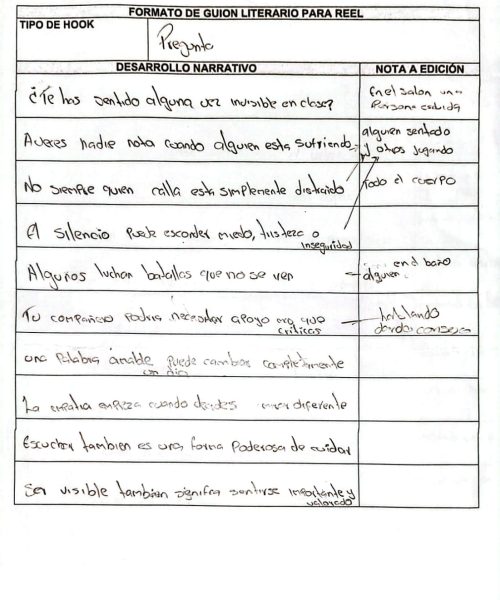 FORMATO DE GUION LITERARIO PARA REEL
TIPO DE HOOK
Pregunta
DESARROLLO NARRATIVO
NOTA A EDICIÓN
¿Te has sentido alguna vez invisible en clase?
En el salon una
Persona
Aveces nadie nota cuando alguien esta sufriendo
alguien sentado
y otros jugando
No siempre quien calla esta simplemente distraido
Todo el cuerpo
El silencio puede esconder miedo, tristeza o
inseguridad
Algunos luchan batallas que no se ven
en el baño
alguien
Tu compañero podria necesitar apoyo mas que
criticas
hablando
dando consejo
una palabra amable puede cambiar completamente
un dia
La empatia empieza cuando decides mirar diferente
Escuchar tambien es una forma poderosa de cuidar
Ser visible tambien significa sentirse importante y
valorado